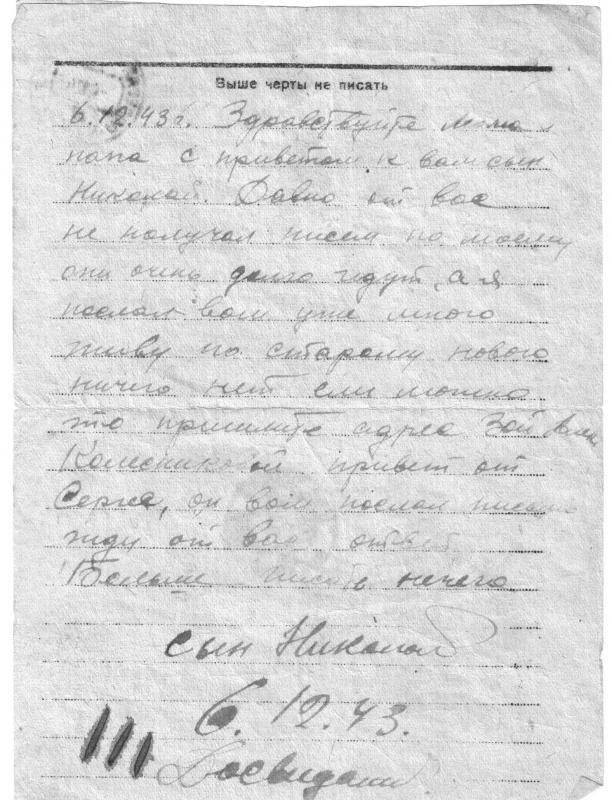 Выше черты не писать
6.12.43 г. Здравствуйте мама и
папа с приветом к вам сын
Николай. Давно от вас
не получал писем по моему
они очень долго идут, а я
послал вам уже много
живу по старому нового
ничего нет если можно
то пришлите адрес Зои
Колесниковой привет от
Сержа, он вам послал письмо
жду от вас ответ
Больше писать нечего
сын Николай
6.12.43.
Досвидания